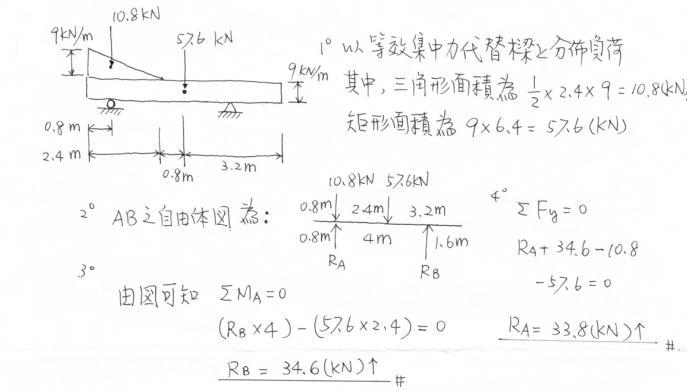 10.8KN
9KN/m
57.6 KN
9KN/m
0.8m
2.4m
0.8m
3.2m
1° 以等效集中力代替樑之分佈負荷
其中,三角形面積為 1/2 × 2.4 × 9 = 10.8(KN)
矩形面積為 9×6.4 = 57.6(KN)
2° AB之自由体図為:
10.8KN 57.6KN
0.8m 2.4m 3.2m
0.8m 4m 1.6m
RA RB
3°
由図可知 ΣMA=0
(RB×4)-(57.6×2.4)=0
RB = 34.6(KN)↑ #
4° ΣFy=0
RA+34.6-10.8
-57.6=0
RA= 33.8(KN)↑ #